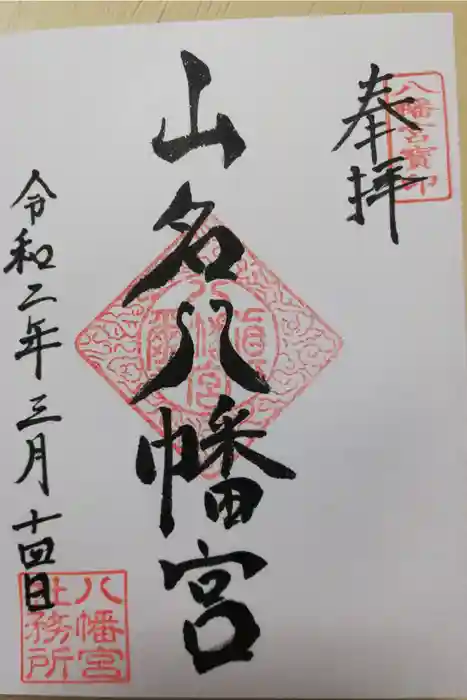 奉拝
八幡宮寳印
山名八幡宮
八幡宮
令和二年三月十四日
八幡宮
社務所